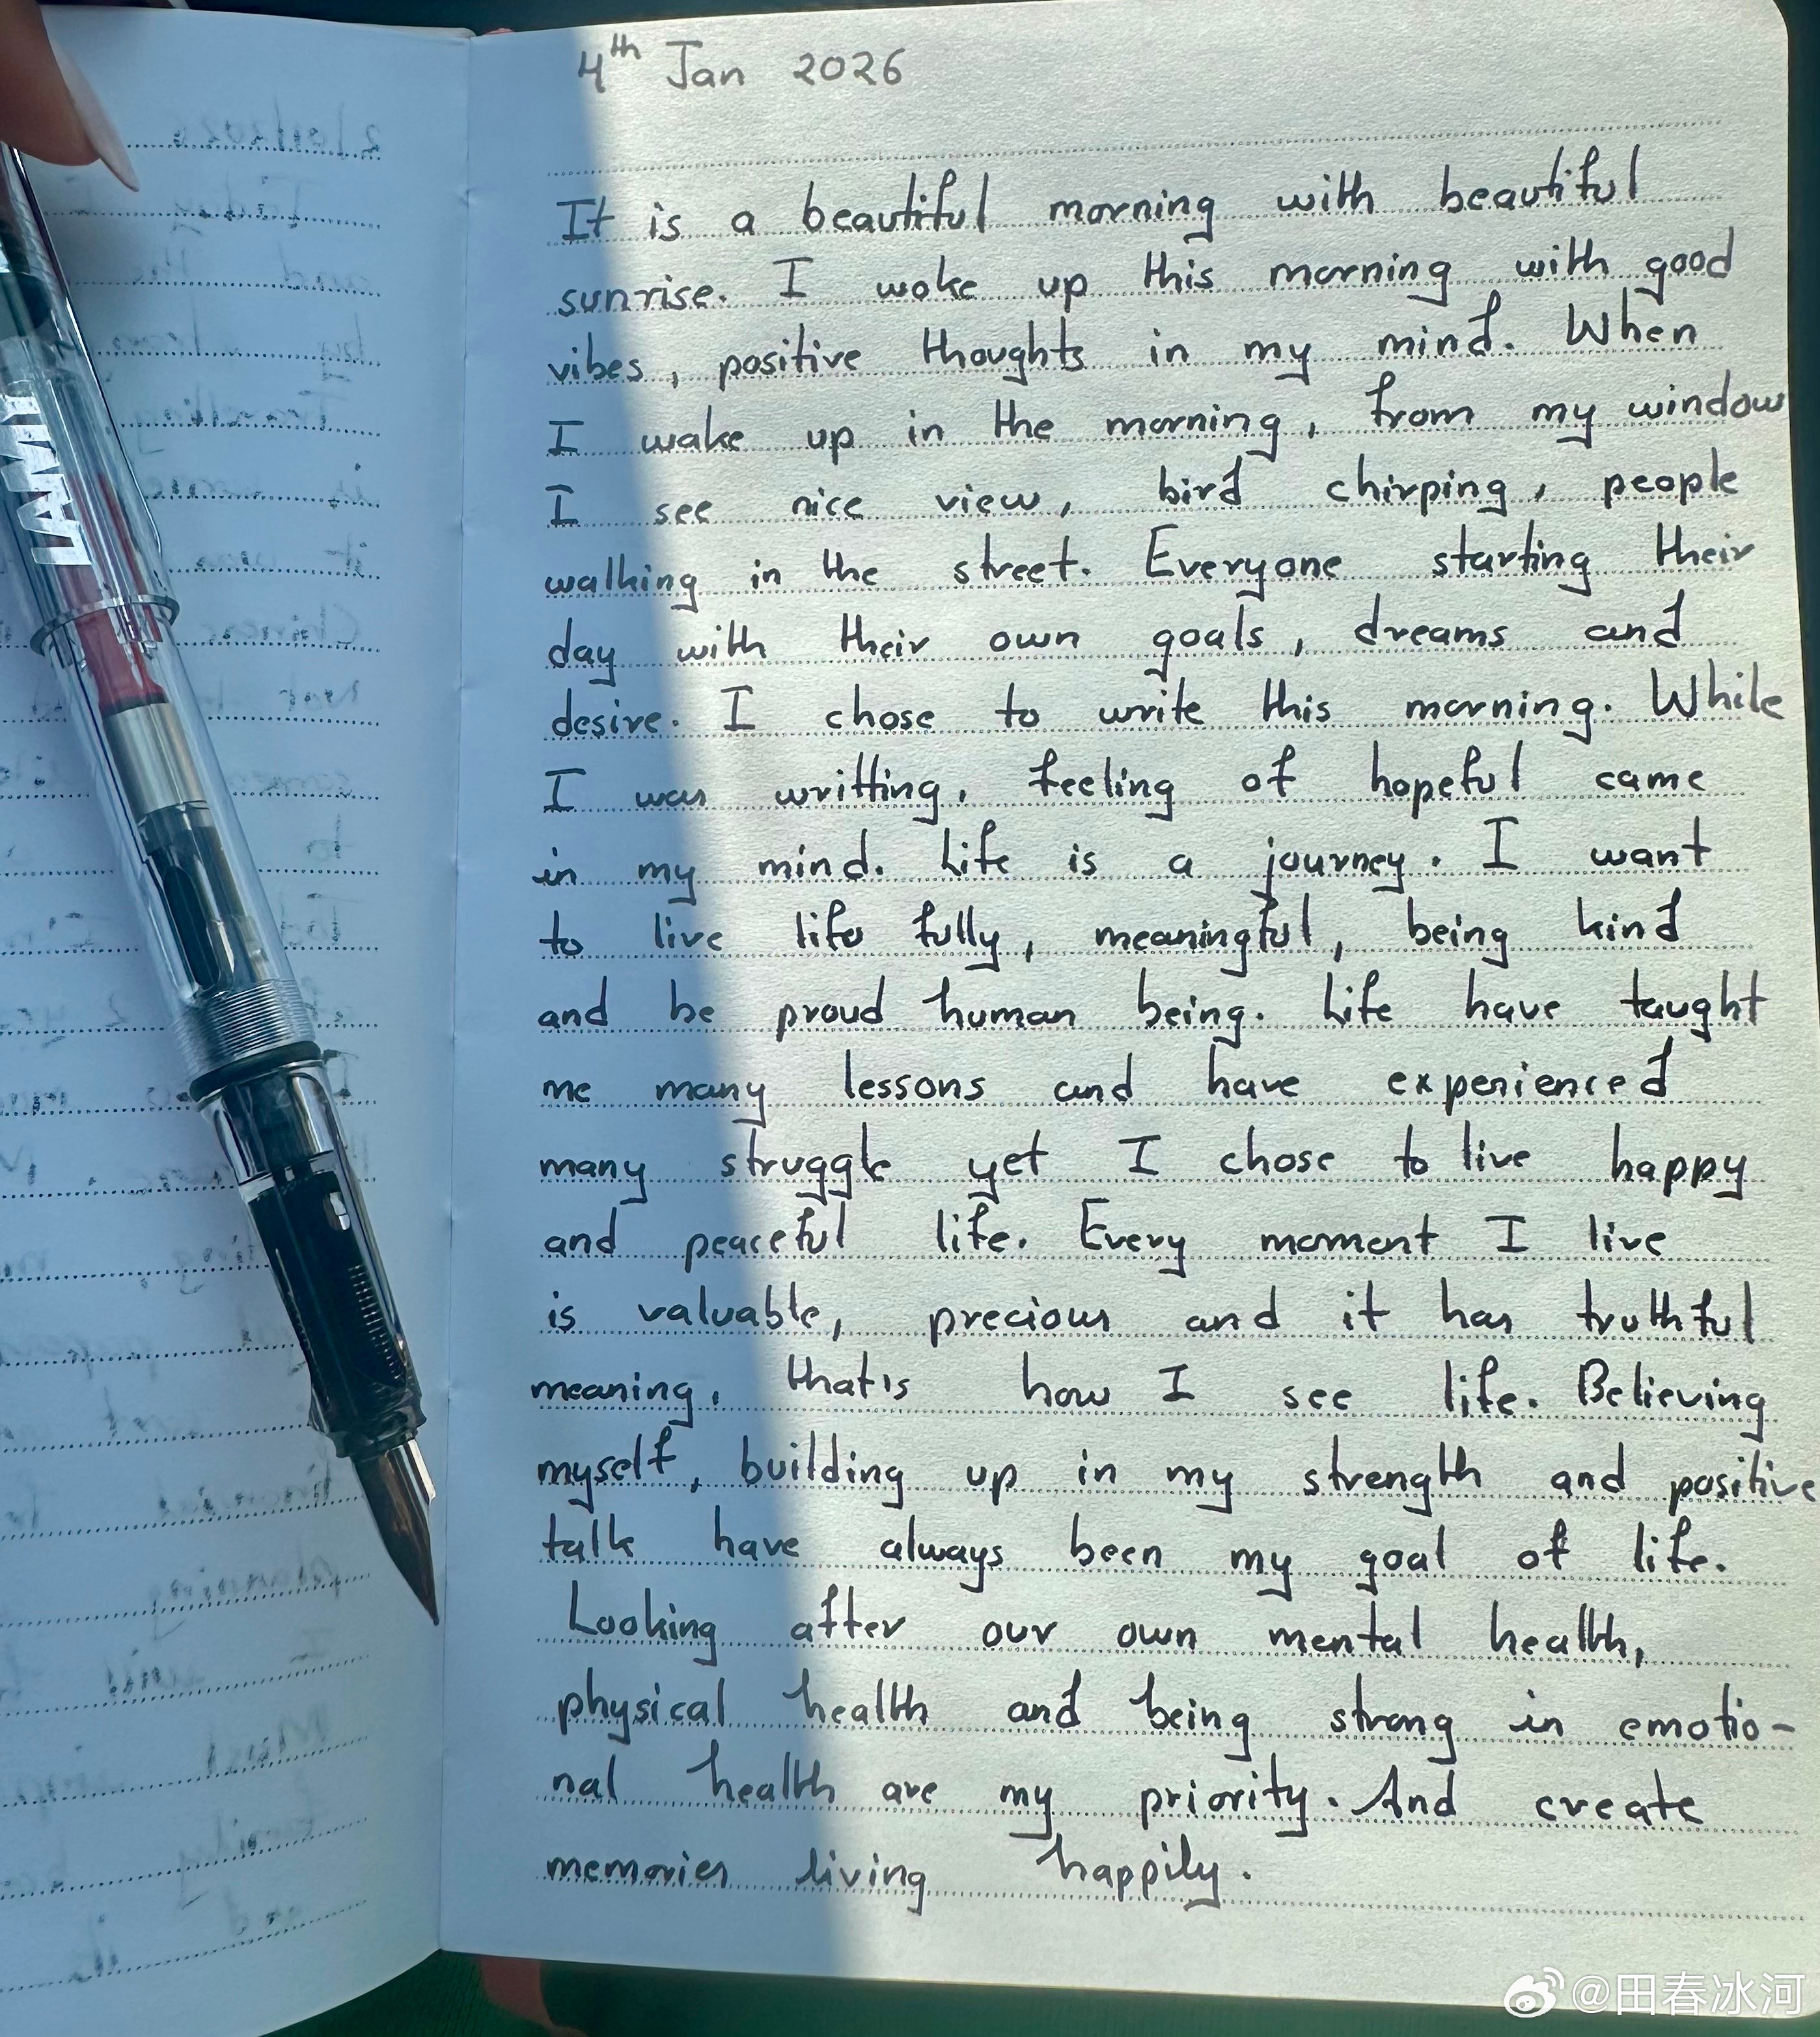 4th Jan 2026
It is a beautiful morning with beautiful
sunrise. I woke up this morning with good
vibes, positive thoughts in my mind. When
I wake up in the morning, from my window
I see nice view, bird chirping, people
walking in the street. Everyone starting their
day with their own goals, dreams and
desire. I chose to write this morning. While
I was writting, feeling of hopeful came
in my mind. Life is a journey. I want
to live life fully, meaningful, being kind
and be proud human being. Life have taught
me many lessons and have experienced
many struggle yet I chose to live happy
and peaceful life. Every moment I live
is valuable, precious and it has truthful
meaning, that's how I see life. Believing
myself, building up in my strength and positive
talk have always been my goal of life.
Looking after our own mental health,
physical health and being strong in emotio-
nal health are my priority. And create
memories living happily.
LAMY
@田春冰河